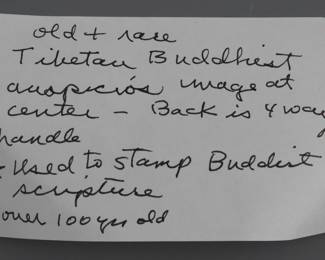 old + rare
Tibetan Buddhist
auspicios image at
center - Back is 4 way
handle
- Used to stamp Buddist
scripture
over 100 yrs old